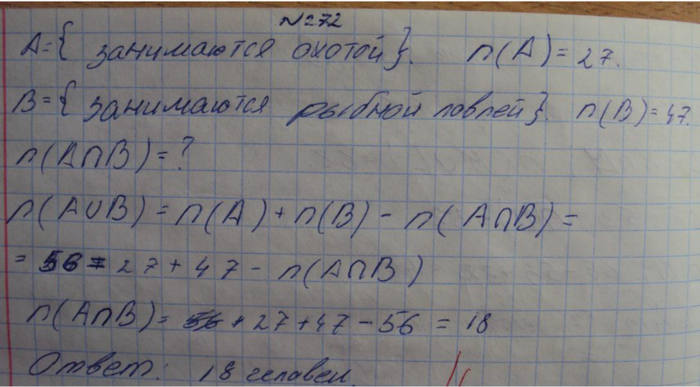 №272
A={ занимаются охотой}. n(A)=27.
B={ занимаются рыбной ловлей}. n(B)=47.
n(A∩B)=?
n(A∪B)=n(A)+n(B)-n(A∩B)=
= 56 = 27+47-n(A∩B)
n(A∩B)= 27+47-56=18
Ответ: 18 человек.